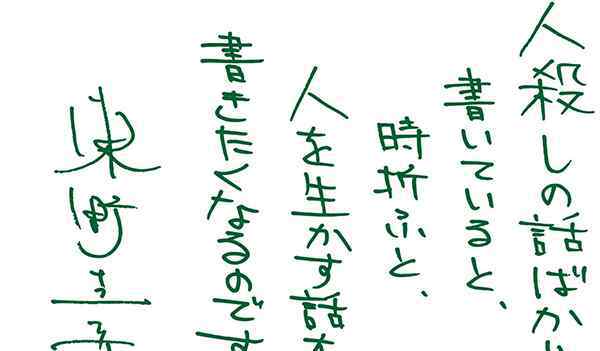 人殺しの話ばか
書いていると、
時折ふと、
人を生かす話
書きたくなるのです
東野圭